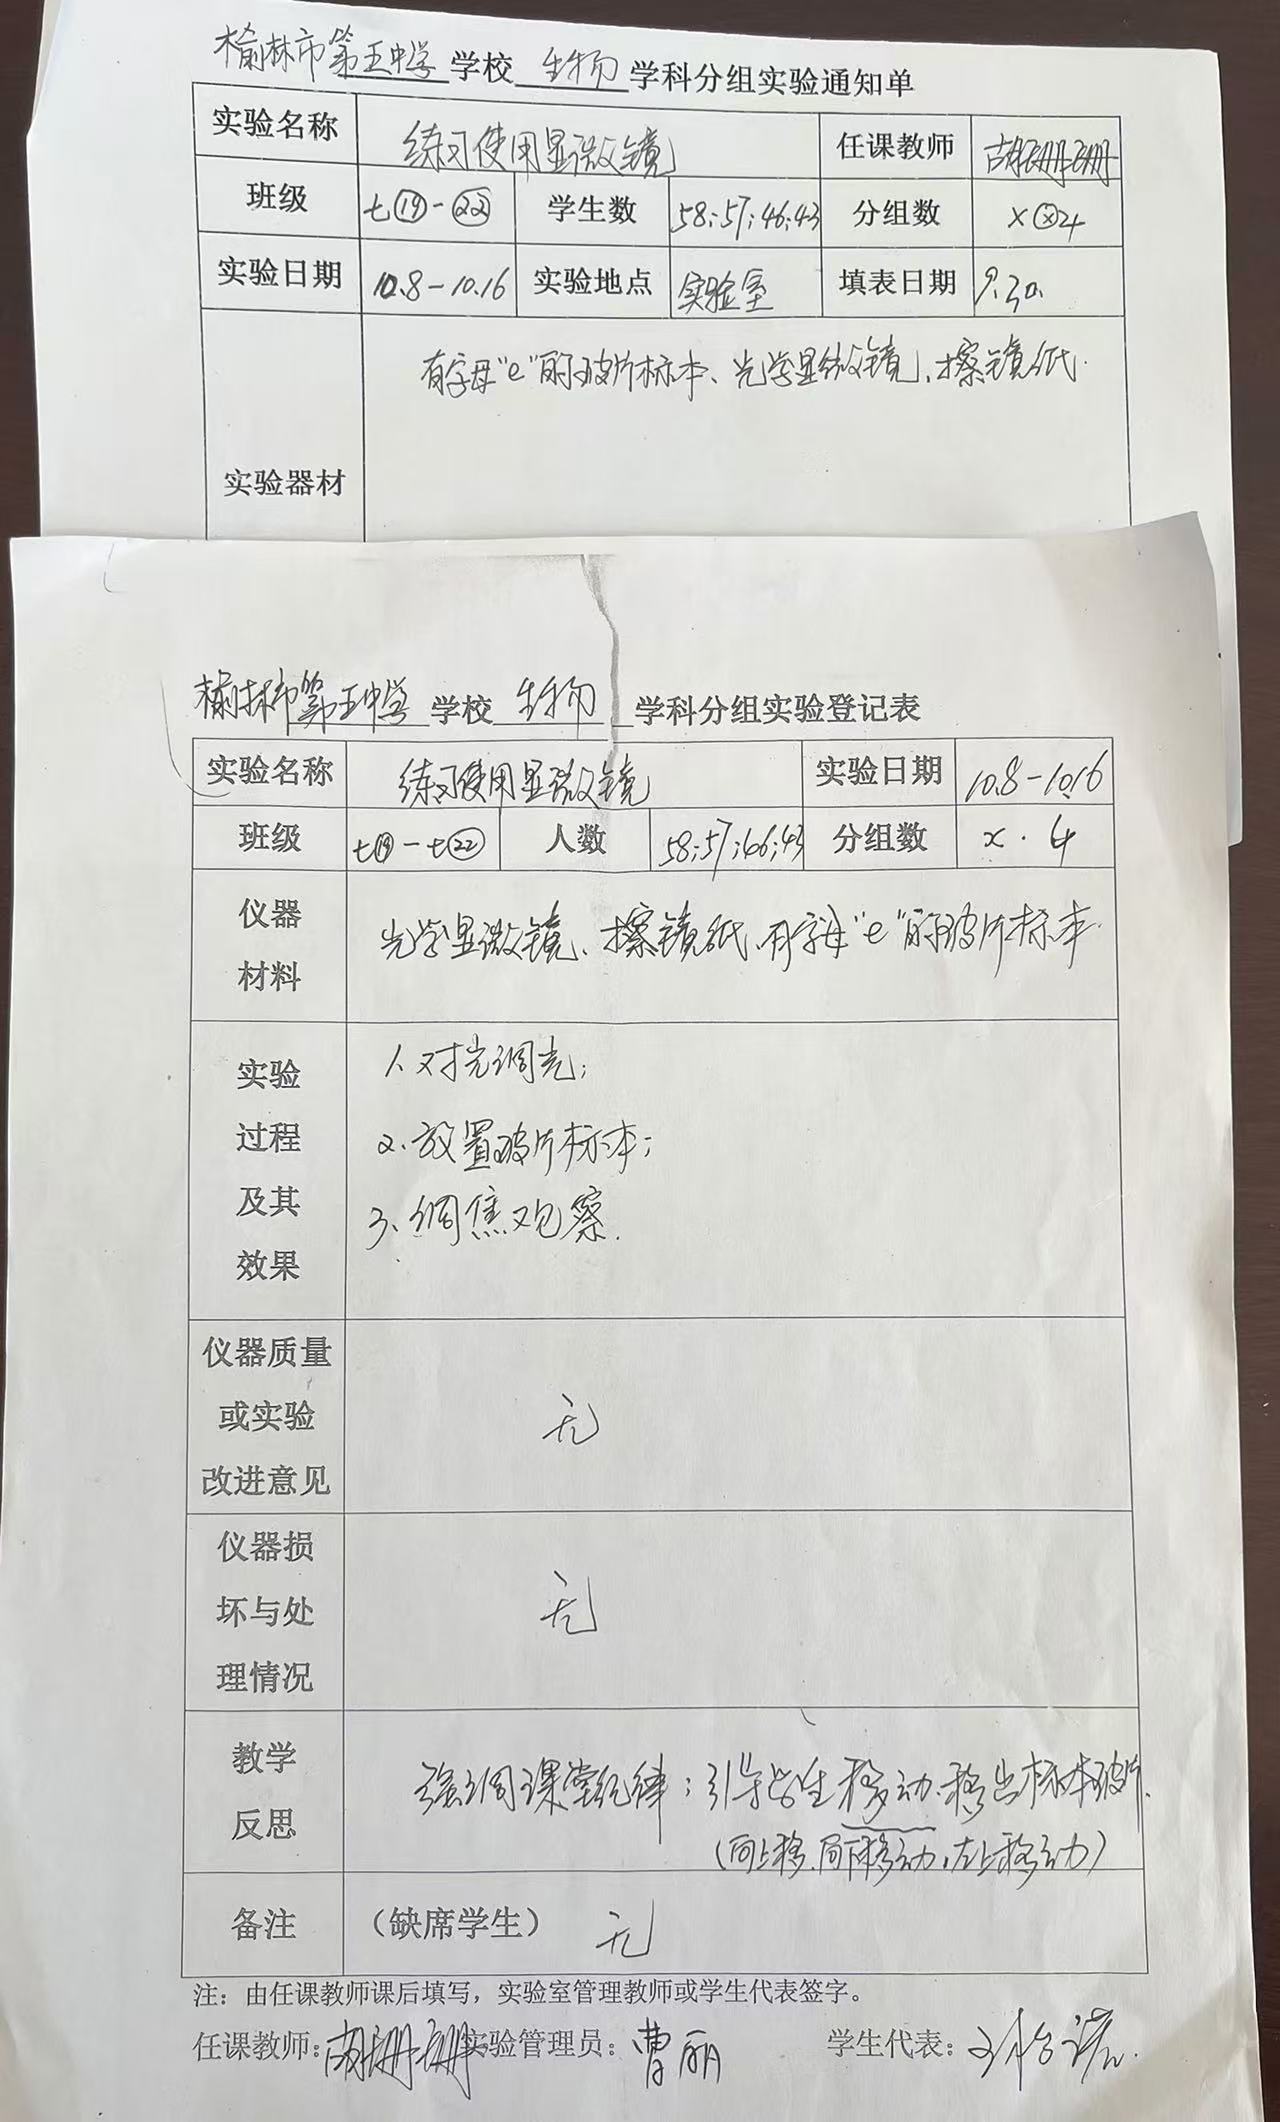 榆林市第五中学 学校 生物 学科分组实验通知单
实验名称 练习使用显微镜 任课教师 胡珊珊
班级 七⑲-㉒ 学生数 58;57;46;43 分组数
实验日期 10.8-10.16 实验地点 实验室 填表日期 9.30.
有字母"e"的玻片标本、光学显微镜、擦镜纸.
实验器材
榆林市第五中学 学校 生物 学科分组实验登记表
实验名称 练习使用显微镜 实验日期 10.8-10.16
班级 七⑲-七㉒ 人数 58;57;46;43 分组数
仪器材料 光学显微镜、擦镜纸、有字母"e"的玻片标本.
实验过程及其效果
1、对光调光;
2、放置玻片标本;
3、调焦观察.
仪器质量或实验改进意见 无
仪器损坏与处理情况 无
教学反思 强调课堂纪律;引导学生移动、移出标本玻片.
(向上移、向下移动,左上移动)
备注 (缺席学生) 无
注:由任课教师课后填写,实验室管理教师或学生代表签字。
任课教师:胡珊珊 实验管理员:曹丽 学生代表: